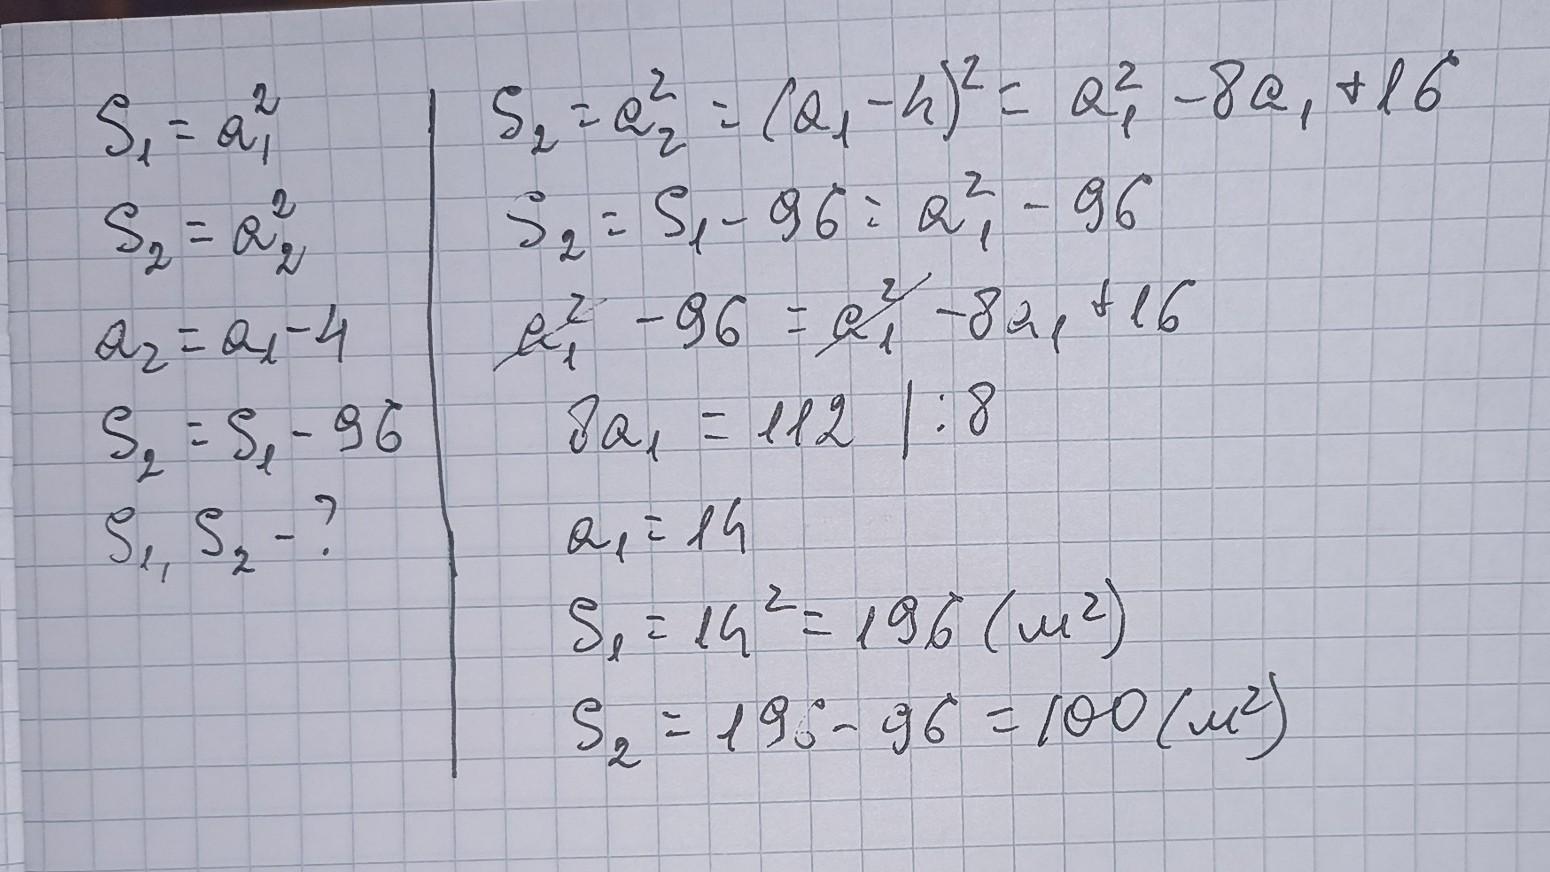 S₁ = a₁²
S₂ = a₂²
a₂ = a₁ - 4
S₂ = S₁ - 96
S₁, S₂ - ?
S₂ = a₂² = (a₁ - 4)² = a₁² - 8a₁ + 16
S₂ = S₁ - 96 = a₁² - 96
a₁² - 96 = a₁² - 8a₁ + 16
8a₁ = 112 | : 8
a₁ = 14
S₁ = 14² = 196 (м²)
S₂ = 196 - 96 = 100 (м²)